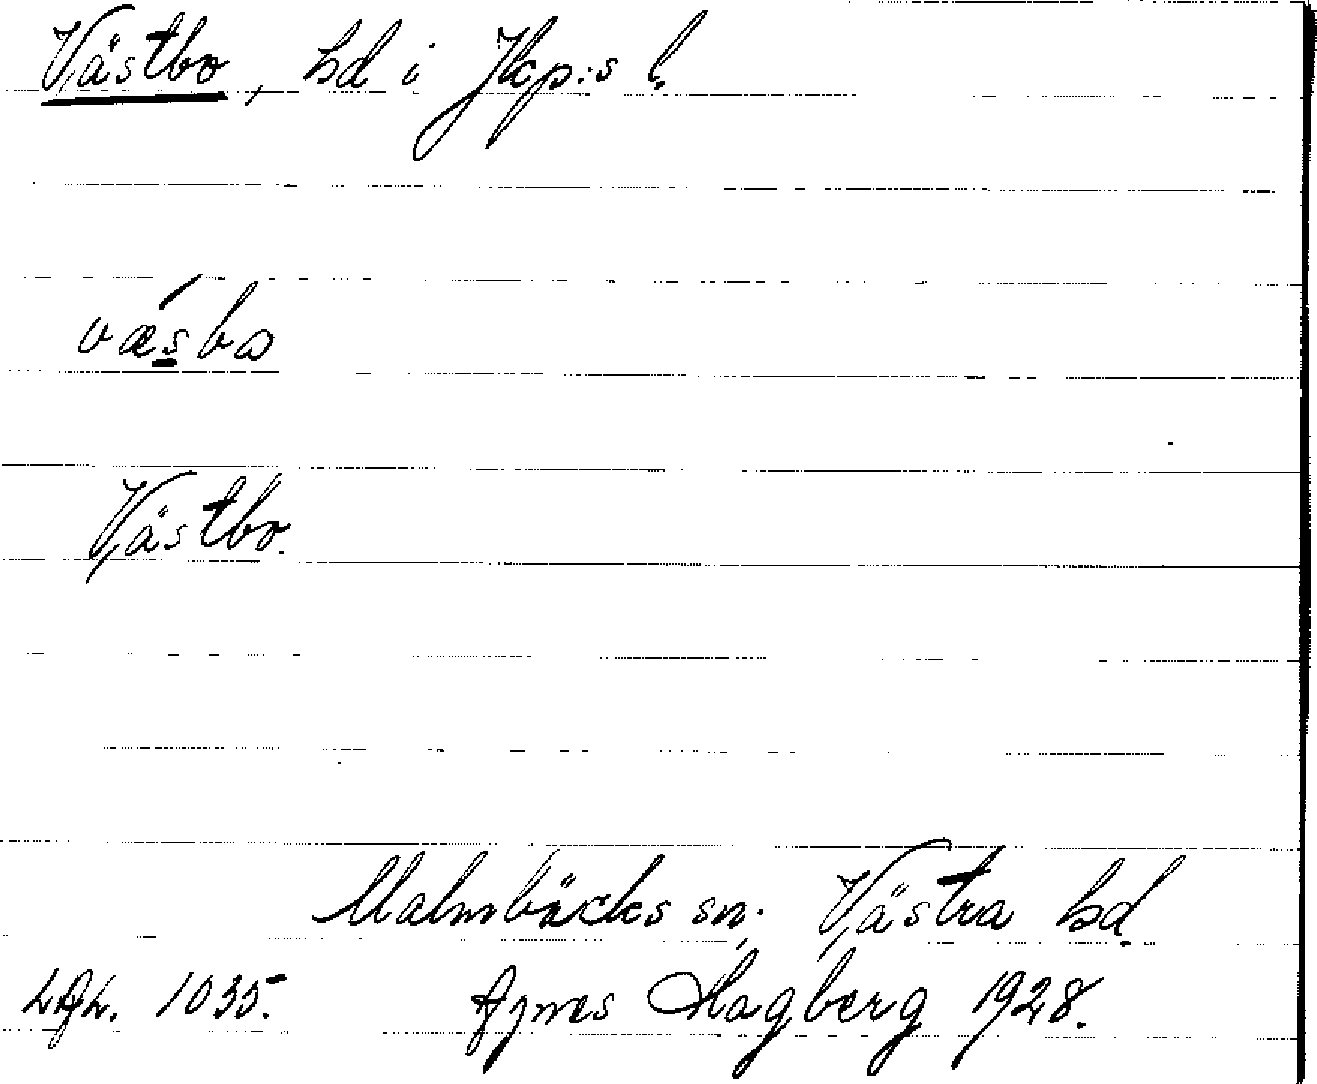 Västbo, hd i Jkp:s l.
vǽsbo
Västbo.
Malmbäcks sn. Västra hd.
1035.
Agnes Hagberg 1928.